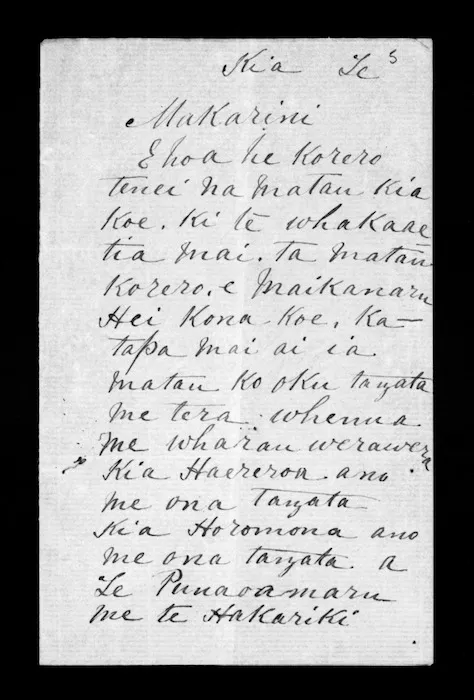 Kia Te
Makarini
Ehoa he Korero
tenei na matau Kia
Koe. Ki te whakaae
tia mai. ta matau
Korero. e Maikanaru
Hei Kona Koe. Ka—
tapa mai ai ia
matau Ko oku tangata
me tera whenua
me wharau werawera
Kia Haereroa ano
me ona tangata
Kia Horomona ano
me ona tangata. a
Te Punaoamaru
me te Hakariki